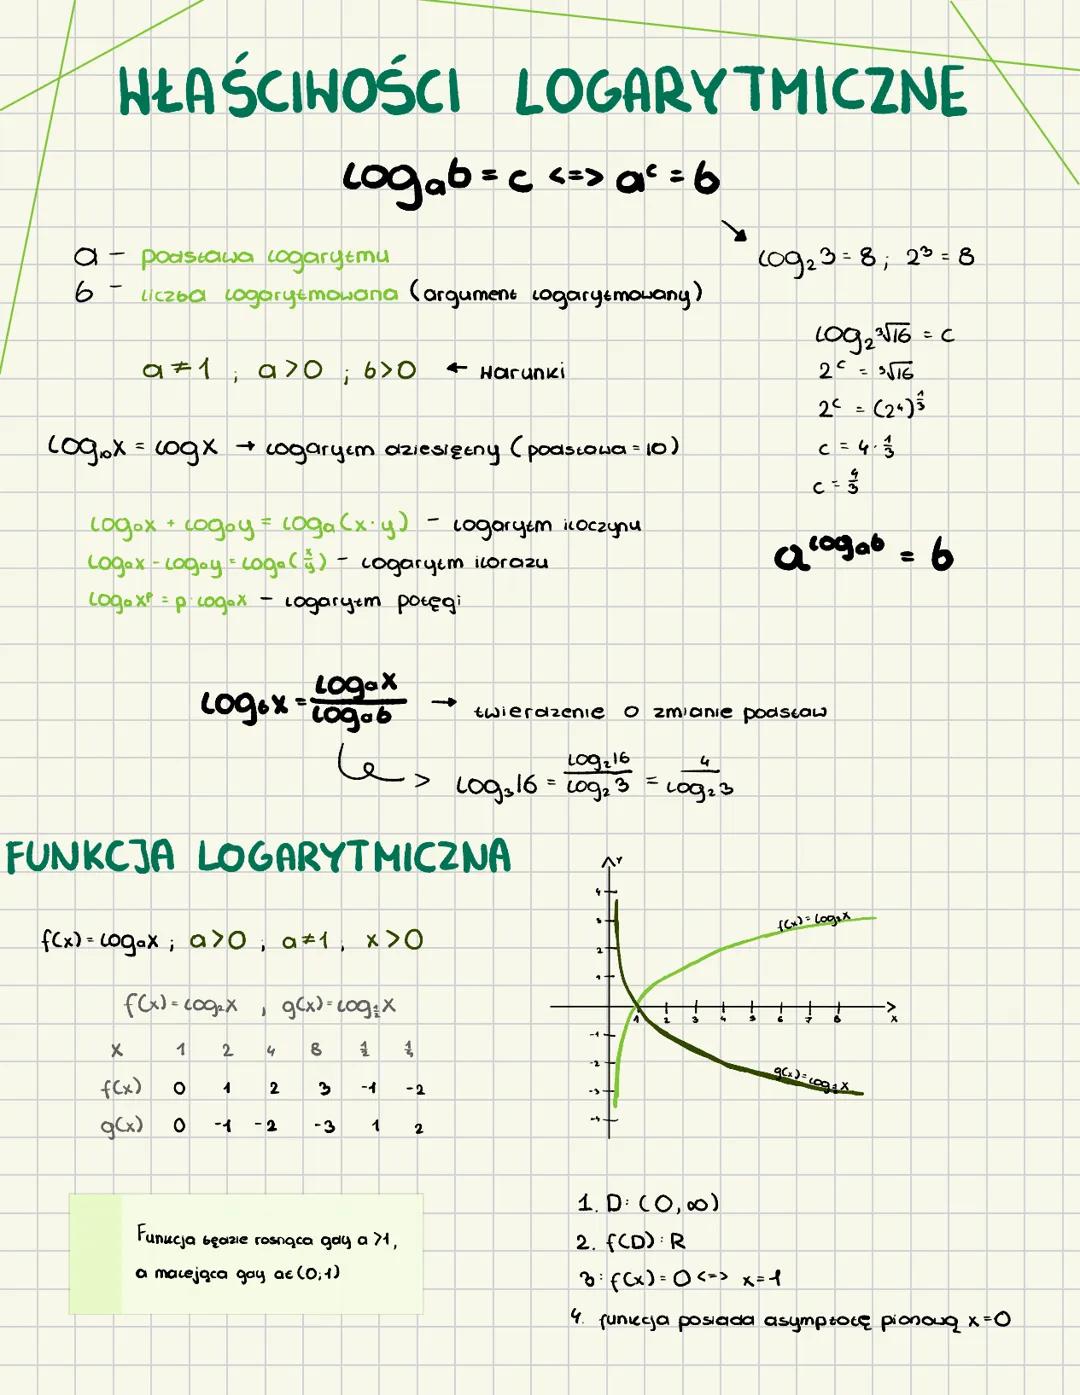 WŁAŚCIWOŚCI LOGARYTMICZNE
logₐb = c <=> aᶜ = b
a - podstawa logarytmu
b - liczba logarytmowana (argument logarytmowany)
log₂3 = 8; 2³ = 8
a ≠ 1 ; a > 0 ; b > 0 ← warunki
log₂∛16 = c
2ᶜ = ∛16
2ᶜ = (2⁴)^(1/3)
c = 4 · 1/3
c = 4/3
log₁₀x = logx → logarytm dziesiętny (podstawa = 10)
logₐx + logₐy = logₐ(x·y) - logarytm iloczynu
logₐx - logₐy = logₐ(x/y) - logarytm ilorazu
logₐxᵖ = p·logₐx - logarytm potęgi
a^(logₐb) = b
log_b x = logₐx / logₐb → twierdzenie o zmianie podstaw
log₃16 = log₂16 / log₂3 = 4 / log₂3
FUNKCJA LOGARYTMICZNA
f(x) = logₐx ; a > 0 ; a ≠ 1 ; x > 0
f(x) = log₂x , g(x) = log_(1/2) x
x 1 2 4 8 1/2 1/4
f(x) 0 1 2 3 -1 -2
g(x) 0 -1 -2 -3 1 2
Y
4
3
2
1
-1
-2
-3
-4
1 2 3 4 5 6 7 8 x
f(x) = log₂x
g(x) = log_(1/2) x
Funkcja będzie rosnąca gdy a > 1,
a malejąca gdy a∈(0;1)
1. D: (0,∞)
2. f(D): R
3: f(x) = 0 <=> x = 1
4. funkcja posiada asymptotę pionową x = 0